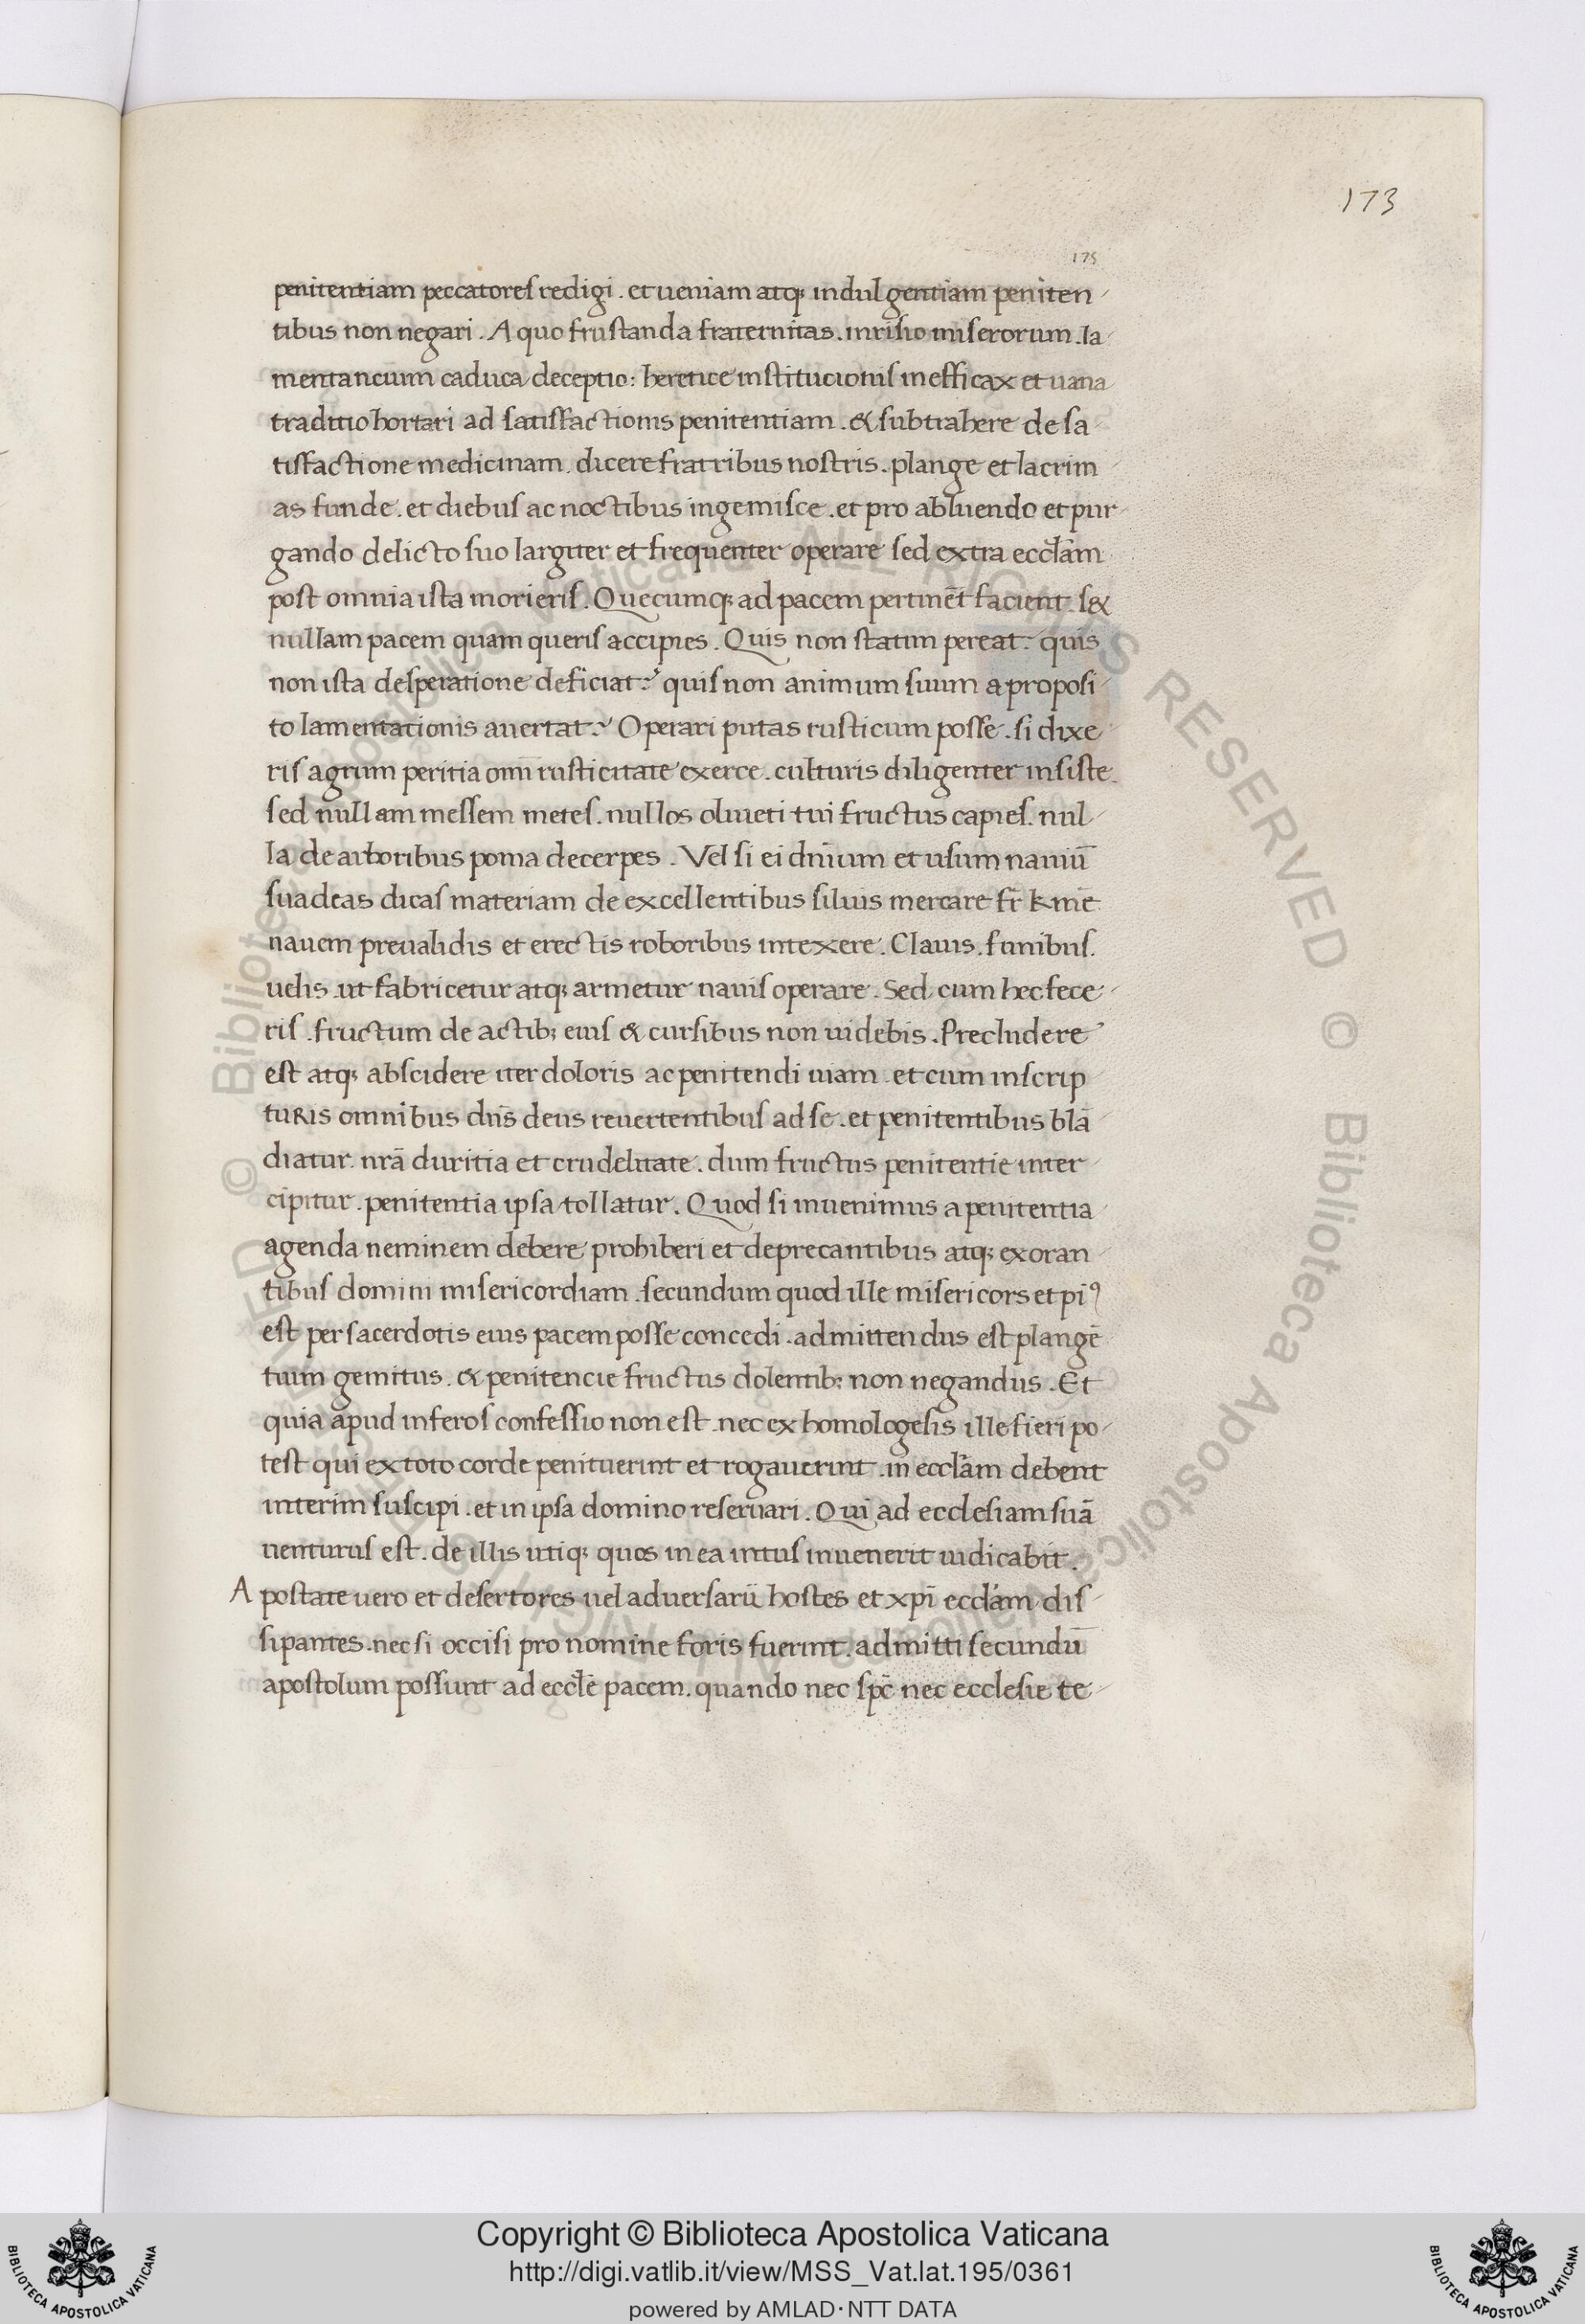 173
175
penitentiam peccatores redigi . et ueniam atq; indulgentiam peniten
tibus non negari . A quo frustanda fraternitas . inrisio miserorum . la
mentancium caduca deceptio : heretice institucionis inefficax et uana
traditio hortari ad satisfactionis penitentiam . & subtrahere de sa
tisfactione medicinam . dicere fratribus nostris . plange et lacrim
as funde . et diebus ac noctibus ingemisce . et pro abluendo et pur
gando delicto suo largiter et frequenter operare sed extra eccłam
post omnia ista morieris . Quecumq; ad pacem pertinēt facient . s&
nullam pacem quam queris accipies . Quis non statim pereat ? quis
non ista desperatione deficiat ? quis non animum suum a proposi
to lamentationis auertat ? Operari putas rusticum posse . si dixe
ris agrum peritia omi rusticitate exerce . culturis diligenter insiste
sed nullam messem metes . nullos oliueti tui fructus capies . nul
la de arboribus poma decerpes . Vel si ei dnium et usum nauiū
suadeas dicas materiam de excellentibus siluis mercare fr̄ kmē
nauem preualidis et erectis roboribus intexere . Clauis . funibus .
uelis . ut fabricetur atq; armetur nauis operare . Sed cum hec fece
ris . fructum de actib; eius & cursibus non uidebis . Precludere
est atq; abscidere iter doloris ac penitendi uiam . et cum in scrip
turis omnibus dn̄s deus reuertentibus ad se . et penitentibus blā
diatur . nrā duritia et crudelitate . dum fructus penitentie inter
cipitur . penitentia ipsa tollatur . Quod si inuenimus a penitentia
agenda neminem debere prohiberi et deprecantibus atq; exoran
tibus domini misericordiam . secundum quod ille misericors et piꝰ
est per sacerdotis eius pacem posse concedi . admittendus est plangē
tium gemitus . & penitencie fructus dolentib; non negandus . Et
quia apud inferos confessio non est . nec exhomologesis ille fieri po
test qui ex toto corde penituerint et rogauerint . in eccłam debent
interim suscipi . et in ipsa domino reseruari . Qui ad ecclesiam suā
uenturus est . de illis utiq; quos in ea intus inuenerit iudicabit .
Apostate uero et desertores uel aduersarii hostes et xp̄i eccłam dis
sipantes . nec si occisi pro nomine foris fuerint . admitti secundū
apostolum possunt ad eccłē pacem . quando nec sp̄c nec ecclesie te
© Biblioteca Apostolica Vaticana ALL RIGHTS RESERVED © Biblioteca Apostolica Vaticana ALL RIGHTS RESERVED
BIBLIOTECA APOSTOLICA VATICANA
Copyright © Biblioteca Apostolica Vaticana
http://digi.vatlib.it/view/MSS_Vat.lat.195/0361
powered by AMLAD·NTT DATA
BIBLIOTECA APOSTOLICA VATICANA